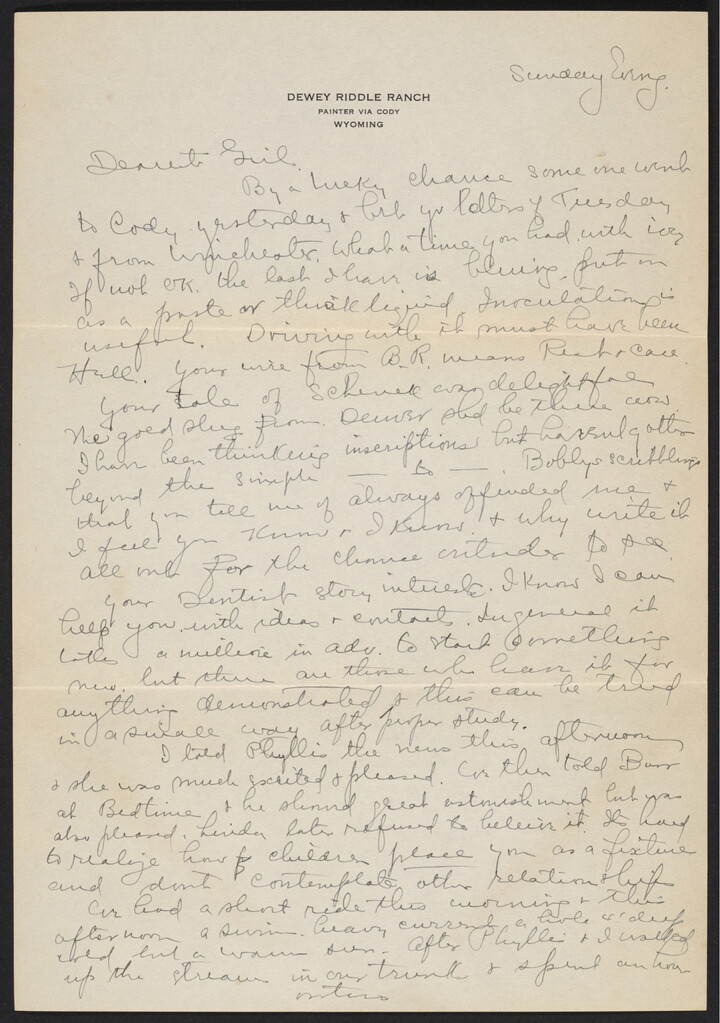 Sunday Evng.
DEWEY RIDDLE RANCH
PAINTER VIA CODY
WYOMING
Dearest Girl.
By a lucky chance some one went
to Cody yesterday & left yr ldtters of Tuesday
& from Winchester. What a time you had with ivy
If not OK. the last I have is bluing. put on
as a paste or thick liquid. Inoculation is
useful. Driving with it must have been
Hell. Your wire from B.R. means Rest & care.
Your tale of Schenck was delightful
The good slug from Denver shd be there now.
I have been thinking inscriptions but havent gotten
beyond the simple — to —. Bobbys scribblings
that you tell me of always offended me &
I feel you know & I know & why write it
all out for the chance outsider to see
Your Dentist story interests. I know I can
help you with ideas & contacts. In general it
takes a million in adv. to start something
new. but there are those who have it for
anything demonstrated & this can be tried
in a small way after proper study.
I told Phyllis the news this afternoon
& she was much excited & pleased. We then told Burr
at Bedtime & he showed great astonishment but was
also pleased. Linda later refused to beleive it. Its hard
to realize how children place you as a fixture
and dont contemplate other relationships
We had a short ride this morning & this
afternoon a swim. heavy current a hole 4' deep
cold but a warm sun. After Phyllis & I walked
up the stream in our trunks & spent an hour